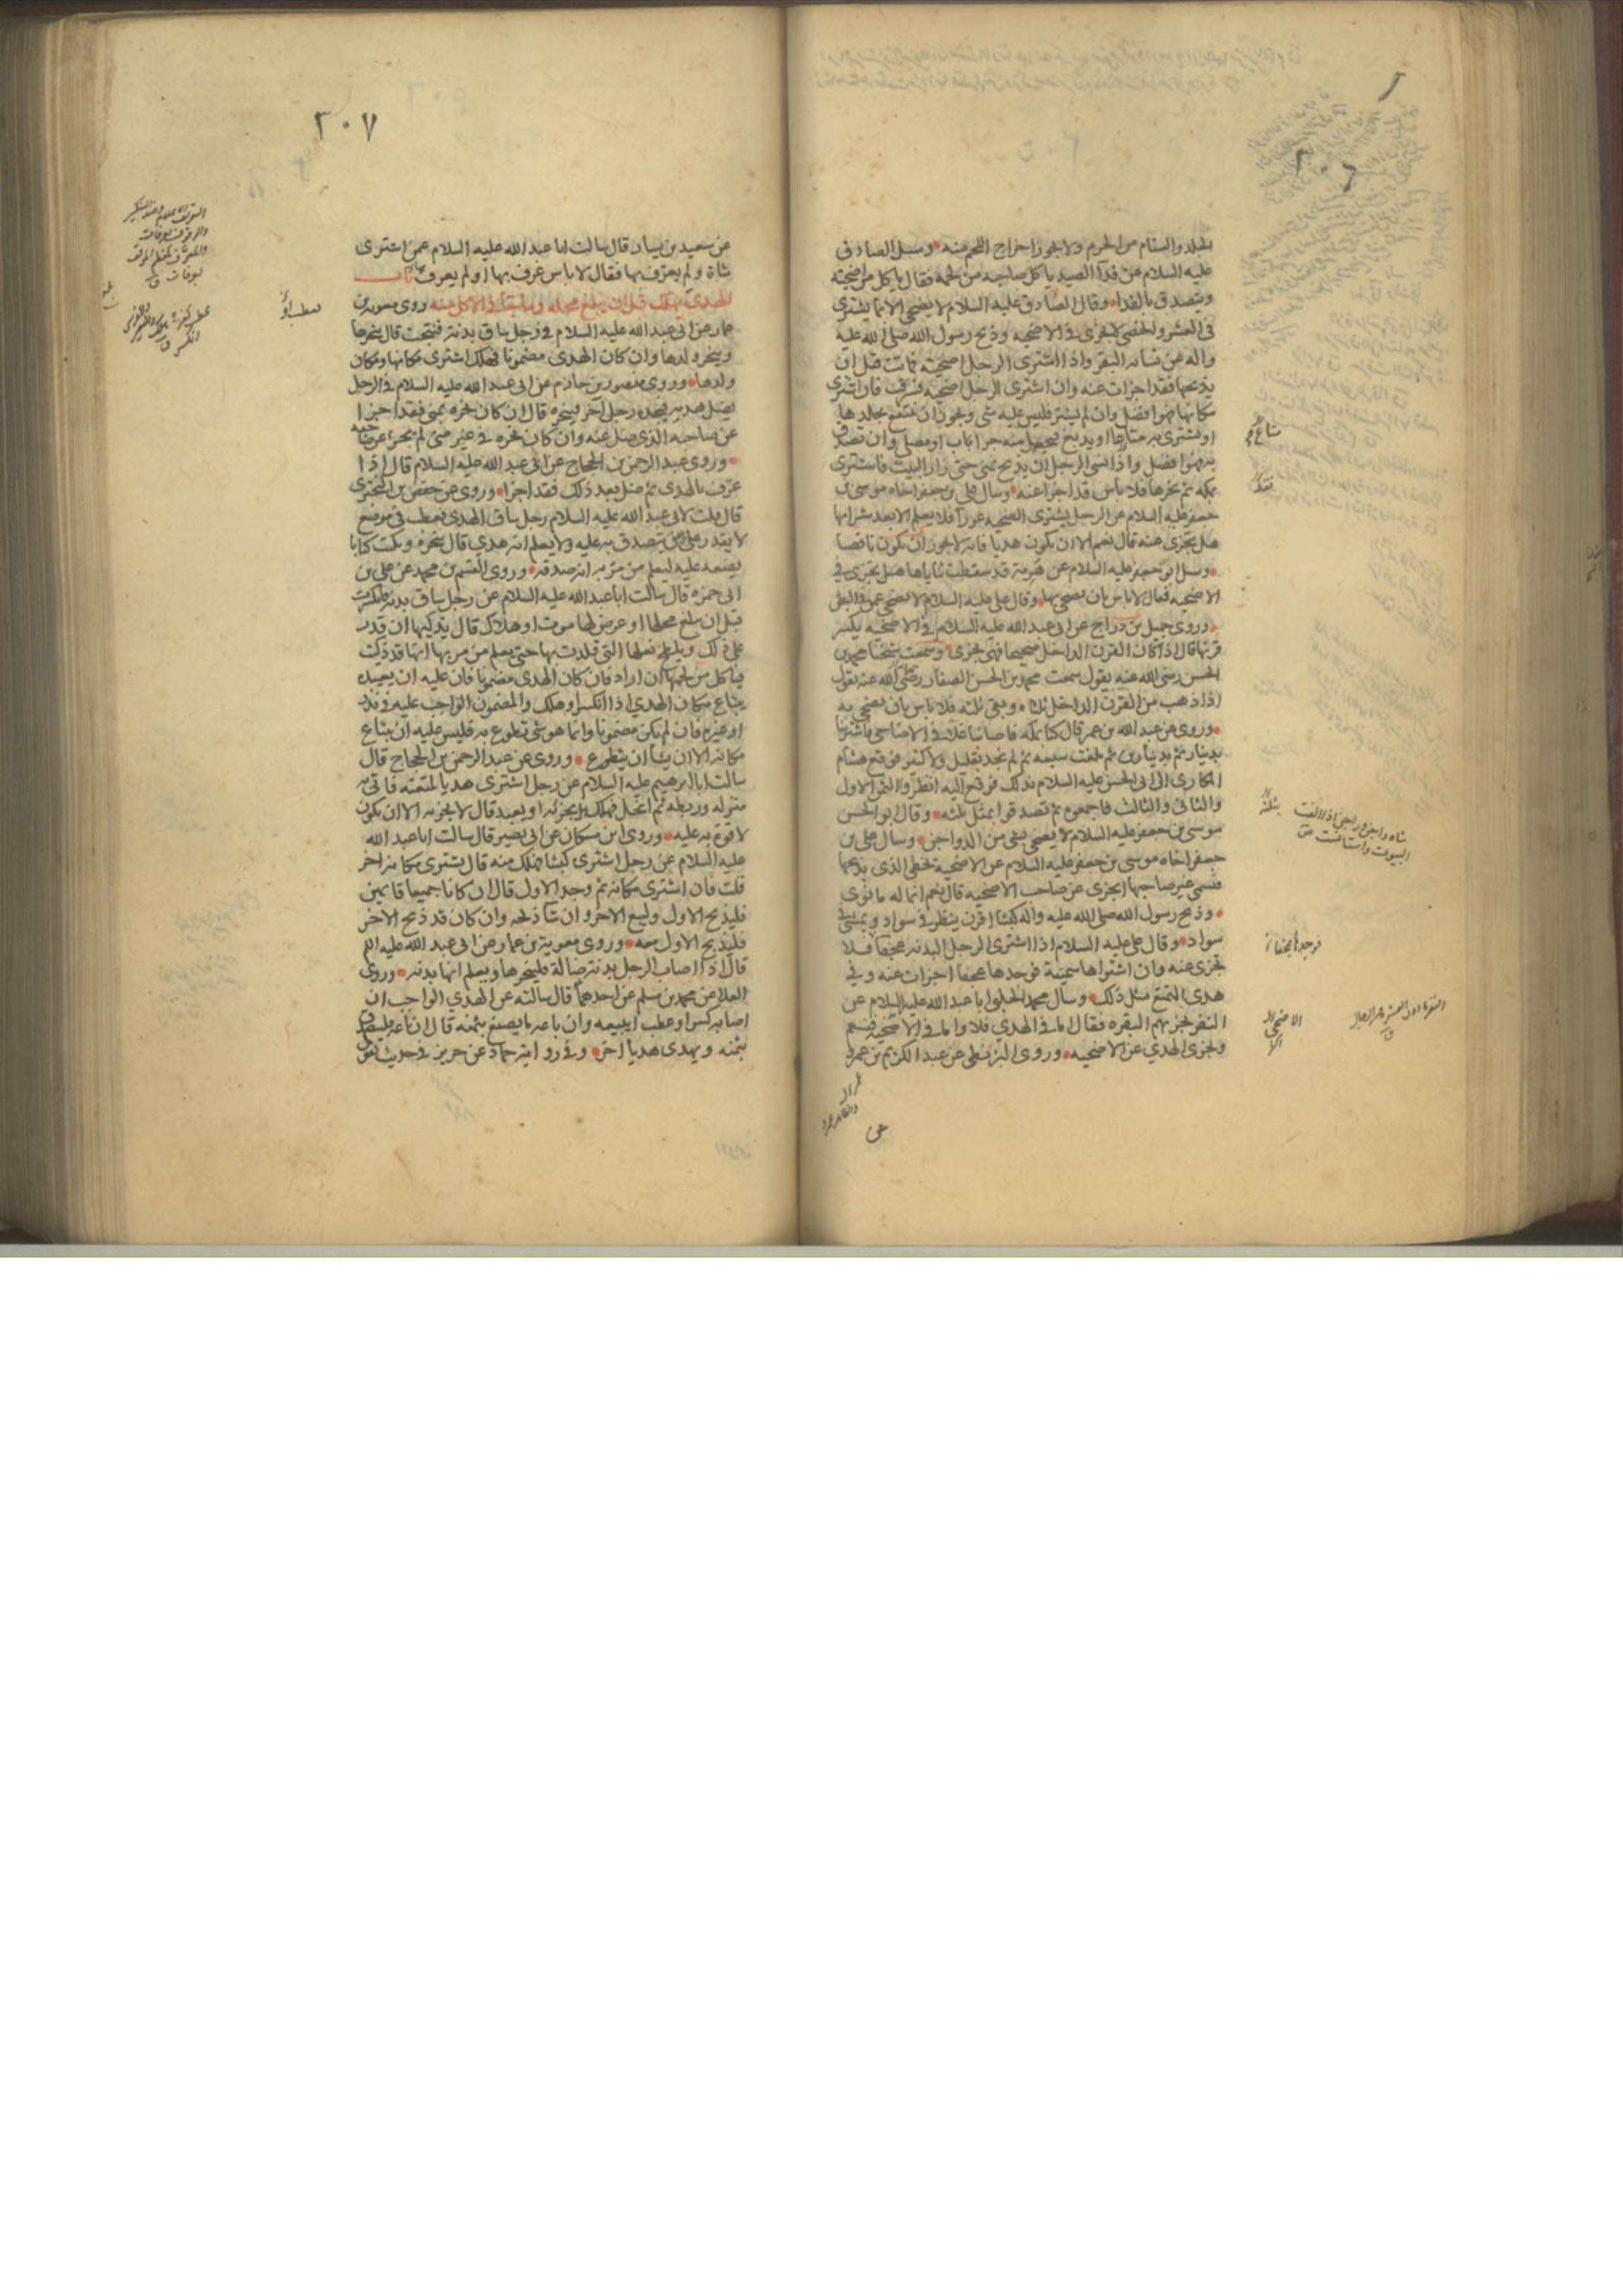 ٣٠٦
الجلد والسنام من الحرم ولا يجوز اخراج اللحم منه وسئل الصادق
عليه السلام عن فدآ الصيد ياكل صاحبه من لحمه فقال ياكل من اضحيته
ويتصدق بالفدا وقال الصادق عليه السلام لا يضحى الا بما يشترى
في العشر والخصى لا يجزى في الاضحيه وذبح رسول الله صلى الله عليه
واله عن نسائه البقر واذا اشترى الرجل اضحيته فماتت قبل ان
يذبحها فقد اجزات عنه وان اشترى الرجل اضحيه فسرقت فان اشترى
مكانها فهو افضل وان لم يشتر فليس عليه شى ويجوز ان ينتفع بجلدها
او يشترى به متاعا او يدبغ فيجعل منه جراب او مصلى وان تصدق
به فهو افضل واذا نسى الرجل ان يذبح بمنى حتى زار البيت فاشترى
بمكه ثم نحرها فلا باس قد اجزا عنه وسال على بن جعفر اخاه موسى بن
جعفر عليه السلام عن الرجل يشترى الضحيه عورآ فلا يعلم الا بعد شرائها
هل يجزى عنه قال نعم الا ان يكون هديا فانه لا يجوز ان يكون ناقصا
وسئل ابو جعفر عليه السلام عن هرمة قد سقطت ثناياها هل يجزى في
الاضحيه فقال لا باس ان يضحى بها وقال على عليه السلام لا يضحى عمن في البطن
وروى جميل بن دراج عن ابى عبد الله عليه السلام في الاضحيه يكسر
قرنها قال اذا كان القرن الداخل صحيحا فهى تجزى وسمعت شيخنا محمد بن
الحسن رضى الله عنه يقول سمعت محمد بن الحسن الصفار رضى الله عنه يقول
اذا ذهب من القرن الداخل ثلثاه وبقى ثلثه فلا باس بان يضحى به
وروى عن عبد الله بن عمر قال كنا بمكه فاصابنا غلآ في الاضاحى فاشترينا
بدينار ثم بدينارين ثم بلغت سبعه ثم لم نجد بقليل ولا كثير فوقع هشام
المكارى الى ابى الحسن عليه السلام بذلك فوقع اليه انظروا الثمن الاول
والثانى والثالث فاجمعوه ثم تصدقوا بمثل ثلثه وقال ابو الحسن
موسى بن جعفر عليه السلام لا يضحى بشى من الدواجن وسال على بن
جعفر اخاه موسى بن جعفر عليه السلام عن الاضحيه يخطى الذى يذبحها
فسمى غير صاحبها ايجزى عن صاحب الاضحيه قال نعم انما له ما نوى
وذبح رسول الله صلى الله عليه واله كبشا اقرن ينظر في سواد ويمشى في
سواد وقال على عليه السلام اذا اشترى الرجل البدنه عجفا فلا
تجزى عنه وان اشتراها سمينة فوجدها عجفا اجزات عنه وفي
هدى المتمتع مثل ذلك وسال محمد الحلبى ابا عبد الله عليه السلام عن
النفر تجزيهم البقره فقال اما في الهدي فلا واما في الاضحيه فنعم
ويجزى الهدي عن الاضحيه وروى البزنطى عن عبد الكريم بن عمرو
متاع
فقد
بثلثه
شاه داجن وراجن اذا الفت
البيوت واستانست
فوجدها عجفاء
الاضحى
عن
٣٠٧
عن سعيد بن يسار قال سالت ابا عبد الله عليه السلام عمن اشترى
شاة ولم يعرّف بها فقال لا باس عرف بها او لم يعرف بها باب
الهدي يهلك قبل ان يبلغ محله وما جآ في الاكل منه روى معويه بن
عمار عن ابى عبد الله عليه السلام في رجل ساق بدنه فنتجت قال ينحرها
وينحر ولدها وان كان الهدى مضمونا فهلك اشترى مكانها ومكان
ولدها وروى منصور بن حازم عن ابى عبد الله عليه السلام في الرجل
يضل هديه فيجده رجل آخر فينحره قال ان كان نحره بمنى فقد اجزا
عن صاحبه الذى ضل عنه وان كان نحره في غير منى لم يجزء عن صاحبه
وروى عبد الرحمن بن الحجاج عن ابى عبد الله عليه السلام قال اذا
عرف بالهدى ثم ضل بعد ذلك فقد اجزا وروى عن حفص بن البخترى
قال قلت لابى عبد الله عليه السلام رجل ساق الهدى فعطب في موضع
لا يقدر على من يتصدق به عليه ولا يعلم انه هدي قال ينحره ويكتب كتابا
يضعه عليه ليعلم من مرّ به انه صدقه وروى القسم بن محمد عن على بن
ابى حمزه قال سالت ابا عبد الله عليه السلام عن رجل ساق بدنه فانكسرت
قبل ان تبلغ محلها او عرض لها موت او هلاك قال يذكيها ان قدر
على ذلك ويلطخ نعلها التى قلدت بها حتى يعلم من مر بها انها قد ذكيت
فياكل من لحمها ان اراد فان كان الهدى مضمونا فان عليه ان يعيده
يبتاع مكان الهدي اذا انكسر او هلك والمضمون الواجب عليه في نذر
او غيره فان لم يكن مضمونا وانما هو شى تطوع به فليس عليه ان يبتاع
مكانه الا ان يشأ ان يتطوع وروى عن عبد الرحمن بن الحجاج قال
سالت ابا ابرهيم عليه السلام عن رجل اشترى هديا لمتعته فاتى به
منزله وربطه ثم انحل فهلك هل يجزئه او يعيد قال لا يجزيه الا ان يكون
لا قوة به عليه وروى ابن مسكان عن ابى بصير قال سالت ابا عبد الله
عليه السلام عن رجل اشترى كبشا فهلك منه قال يشترى مكانه اخر
قلت فان اشترى مكانه ثم وجد الاول قال ان كانا جميعا قايمين
فليذبح الاول وليبع الاخر وان شآ ذبحه وان كان قد ذبح الاخر
فليذبح الاول معه وروى معوية بن عمار عن ابى عبد الله عليه السلم
قال اذا اصاب الرجل بدنة ضالة فلينحرها ويعلم انها بدنه وروى
العلا عن محمد بن مسلم عن احدهما قال سالته عن الهدي الواجب ان
اصابه كسر او عطب ايبيعه وان باعه ما يصنع بثمنه قال ان باعه فليتصدق
بثمنه ويهدى هديا اخر وفي رواية حماد عن حريز في حديث يقول